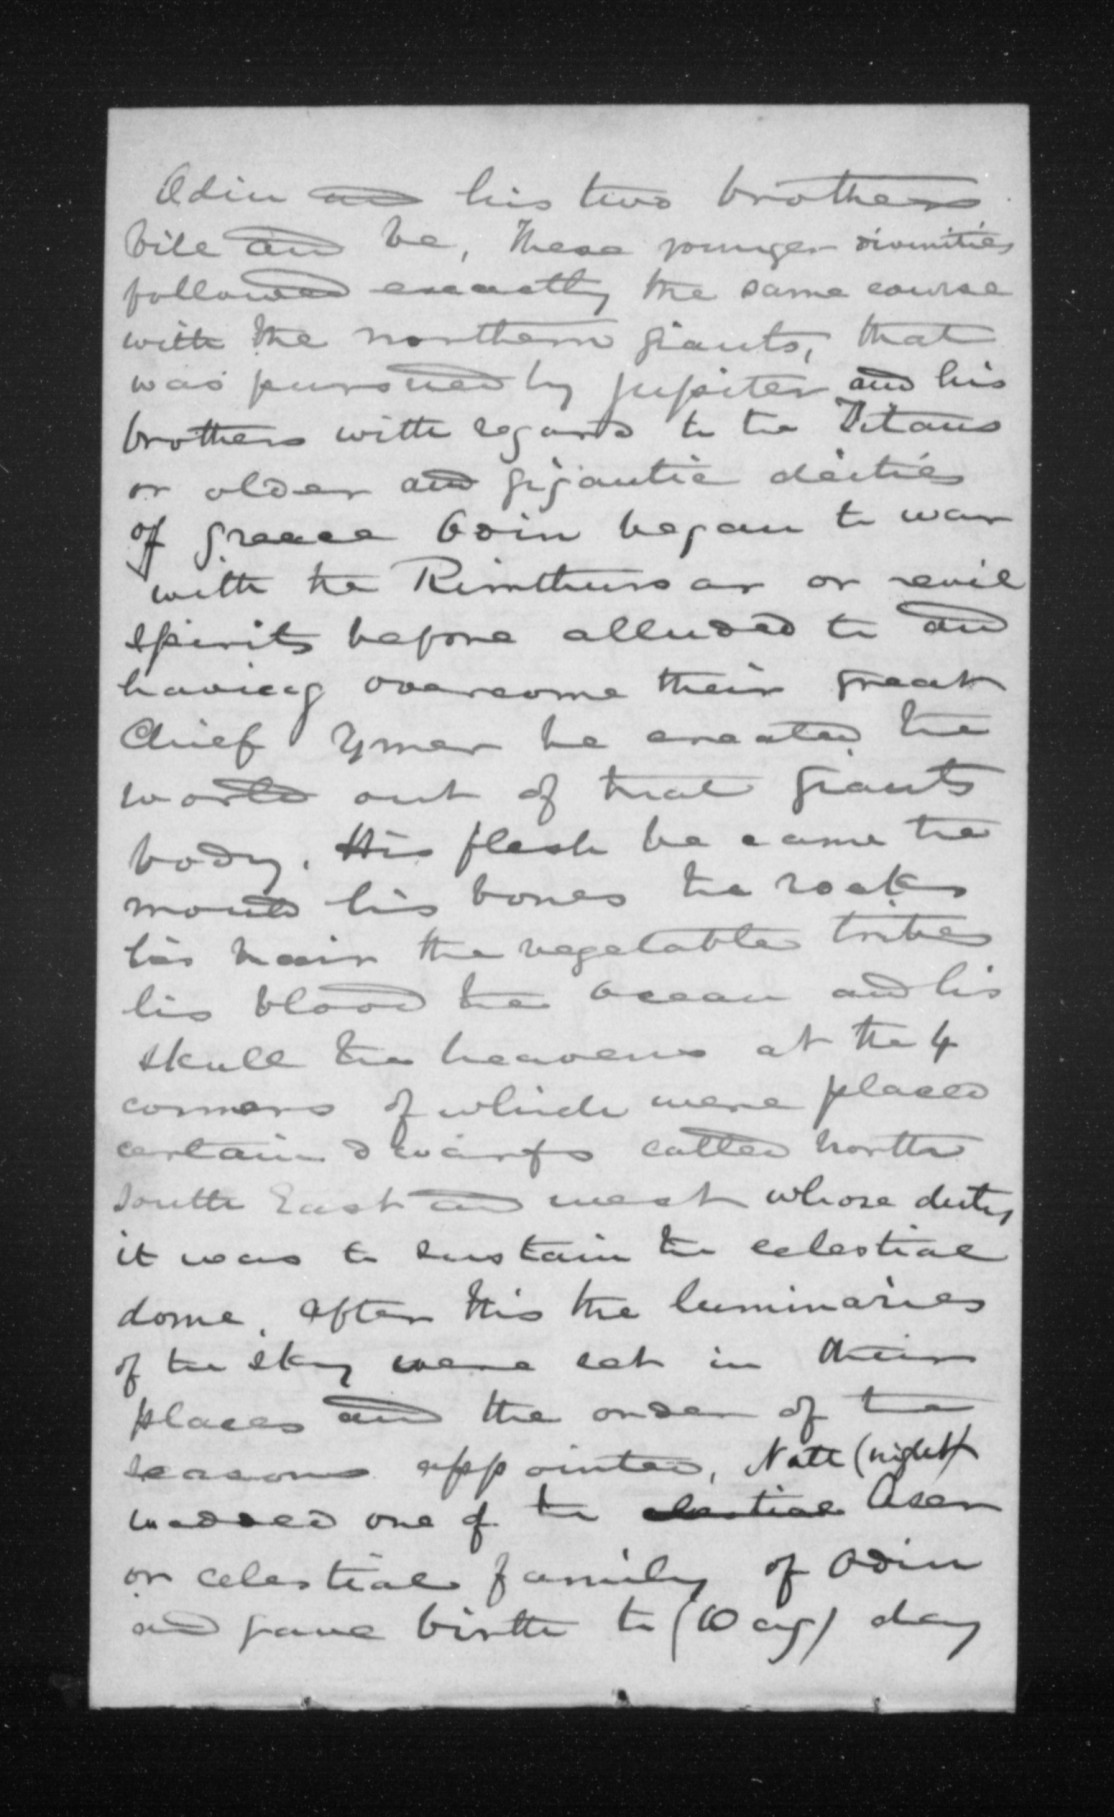 Odin and his two brothers
Vile and Ve, These younger divinities
followed exactly the same course
with the northern giants, that
was pursued by Jupiter and his
brothers with regard to the Titans
or older and gigantic deities
of greece Odin began to war
with the Rimthursar or evil
spirits before alluded to and
having overcome their great
Chief Ymer he created the
world out of that giants
body. His flesh be came the
mould his bones the rocks
his hair the vegetable tribes
his blood the ocean and his
skull the heavens at the 4
corners of which were placed
certain dwarfs called North
South East and west whose duty
it was to sustain the celestial
dome. After this the luminaries
of the sky were set in their
places and the order of the
seasons appointed, Natt (night)
wedded one of the celestial Aser
or celestial family of Odin
and gave birth to (Dag) day